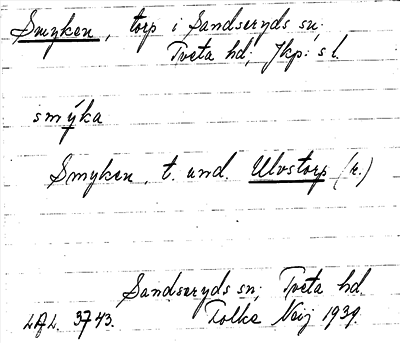 Smyken, torp i Sandseryds sn.
Tveta hd, Jkp: s l.
smýka
Smyken, t. und. Ulvstorp (r.)
Sandseryds sn; Tveta hd.
LAL. 3743. Folke 1939.